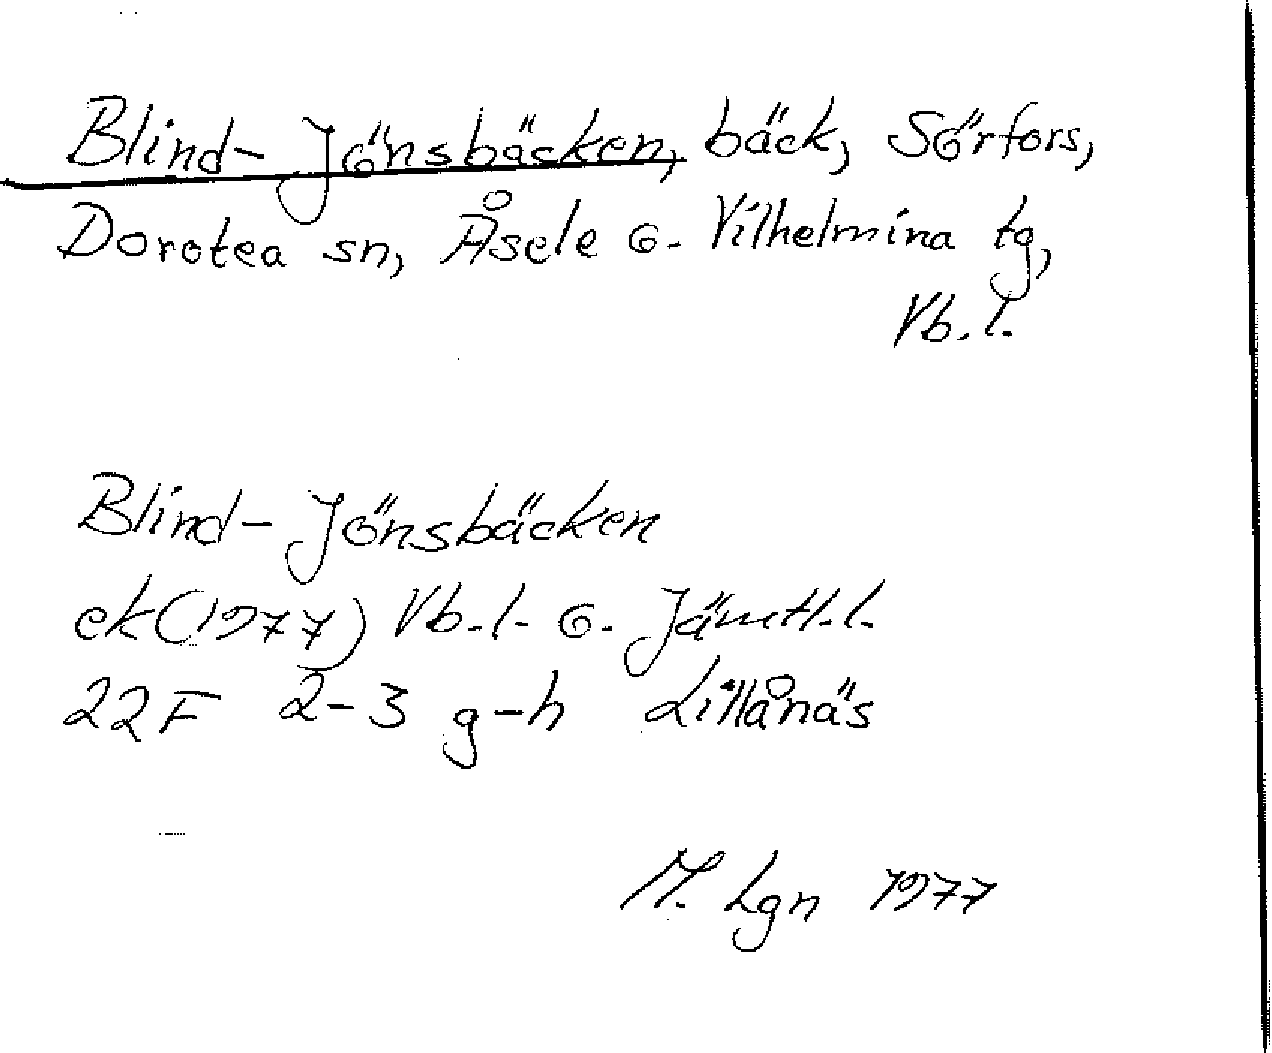 Blind-Jönsbäcken, bäck, Sörfors,
Dorotea sn, Åsele o. Vilhelmina tg,
Vb. l.
Blind-Jönsbäcken
ek (1977) Vb. l. o. Jämtl. l.
22F 2-3 g-h Lillånäs
M. Lgn 1977